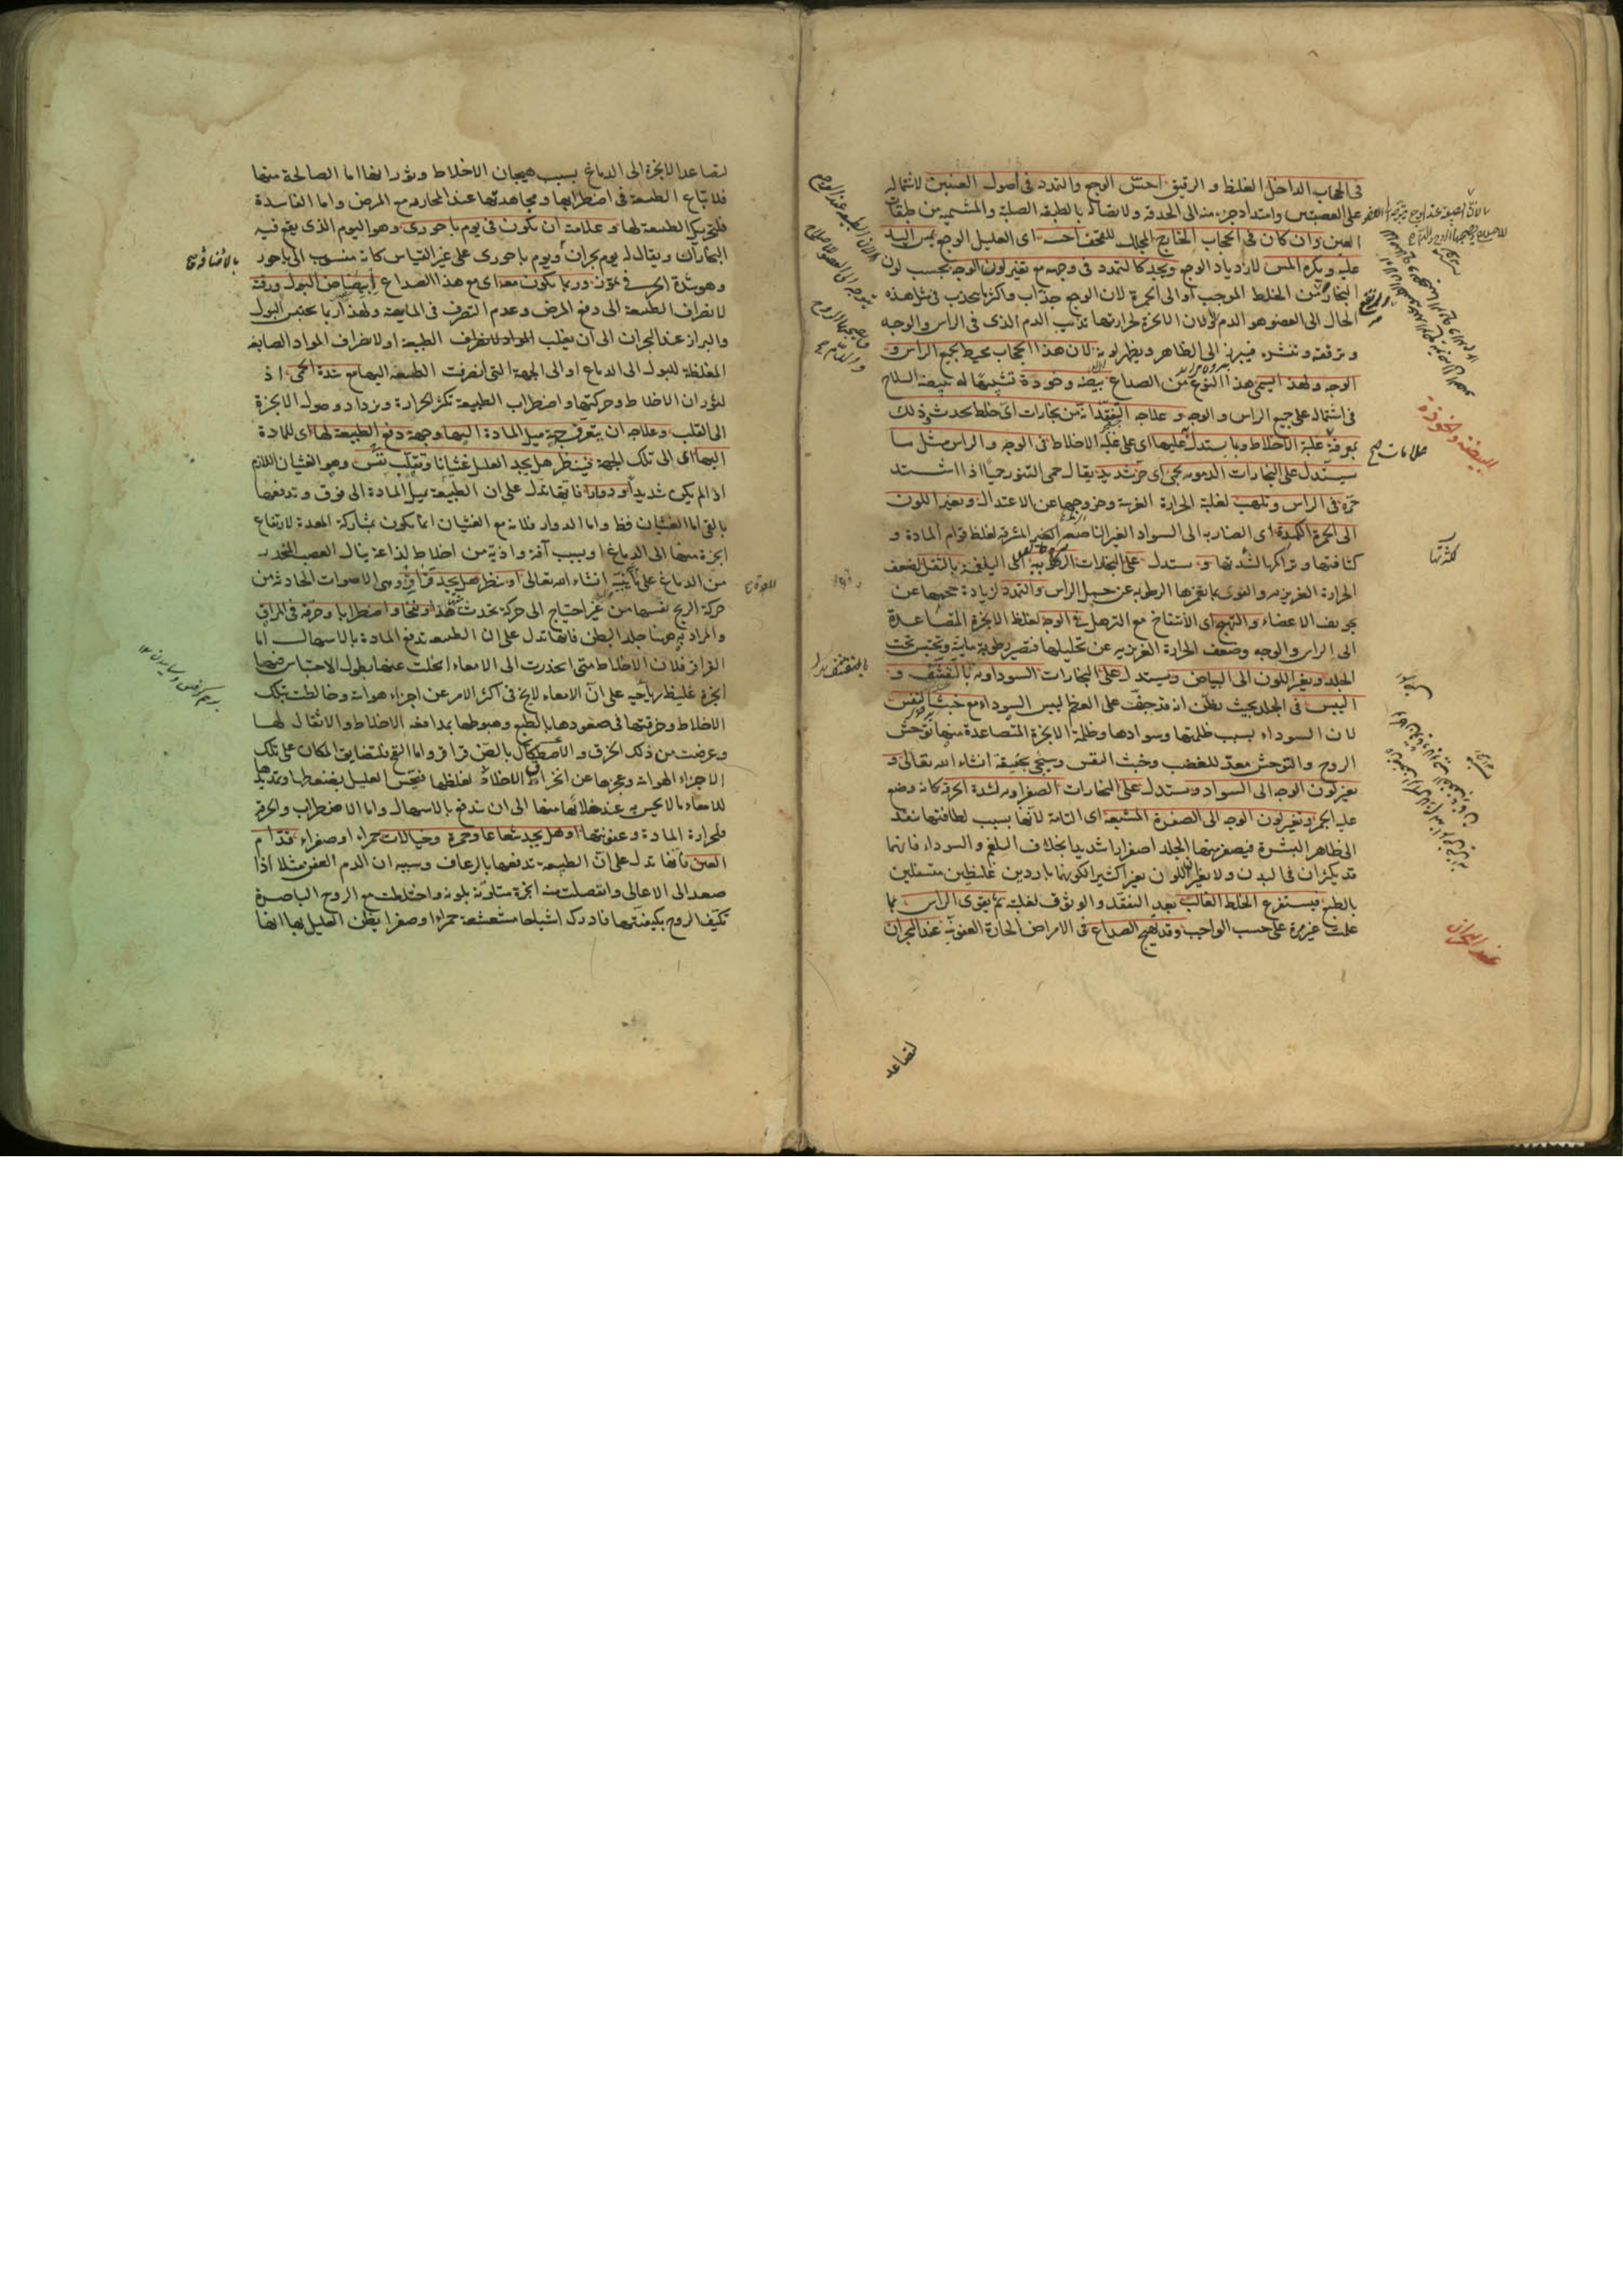 فى الحجاب الداخل الغليظ و الرقيق احتس الوجع والتمدد فى اصول العينين لاشتماله
على العصبتين وامتداد جزء منه الى الحدقة ولاتصاله بالطبقة الصلبة والمشيمية من طبقات
العين وان كان فى الحجاب الخارج المجلل للقحف احس اى العليل الوجع بمس اليد
عليه ويكره المس لازدياد الوجع ويجد كالتمدد فى وجهه مع تغير لون الوجه بحسب لون
البخار من الخلط الموجب او الى الحمرة لان الوجع جذاب واكثر ما يجذب فى مثل هذه
الحال الى العضو هو الدم ولان الابخرة لحرارتها تذيب الدم الذى فى الراس والوجه
وترققه وتنشره فيبرز الى الظاهر ويظهر لونه لان هذا الحجاب محيط بجميع الراس و
الوجه ولهذا يسمى هذا النوع من الصداع بيضة وخوذة تشبيها له ببيضة السلاح
فى اشتماله على جميع الراس والوجه وعلاجه التفقد انه من بخارات اى خلط يحدث وذلك
بمعرفة غلبة الاخلاط وبما يستدل عليها اى على غلبة الاخلاط فى الوجه والراس مثل ما
سيستدل على البخارات الدموية بحمى اى حر شديد يقال حمى التنور حميا اذا اشتد
حره فى الراس وتلهب لغلبة الحرارة الغريبة وخروجها عن الاعتدال وتغير اللون
الى الحمرة الكمدة اى الضاربة الى السواد الغير الناصع الغير المشرقة لغلظ قوام المادة و
كثافتها وتراكمها لشدتها ويستدل على البخارات الرطوبية اى البلغمية بالثقل لضعف
الحرارة الغريزية والقوى بما تغمرها الرطوبة عن حمل الراس والتمدد لزيادة حجمها عن
تجويف الاعضاء والتهيج اى الانتفاخ مع الترهل فى الوجه لغلظ الابخرة المتصاعدة
الى الراس والوجه وضعف الحرارة الغريزية عن تحليلها فتصير رطوبة مايية وتحتبس تحت
الجلد وتغير اللون الى البياض ويستدل على البخارات السوداوية بالتقشف و
اليبس فى الجلد بحيث يظن انه قد جف على العظم ليبس السوداء مع خبث النفس
لان السوداء بسبب ظلمتها وسوادها وظلمة الابخرة المتصاعدة منها توحش
الروح والتوحش معد للغضب وخبث النفس وسيجى تحقيقه انشاء الله تعالى و
تغير لون الوجه الى السواد ويستدل على البخارات الصفراوية لشدة الحرقة كانه وضع
عليه الجمر وتغير لون الوجه الى الصفرة المشبعة اى التامة لانها بسبب لطافتها تنفذ
الى ظاهر البشرة فيصفر منها الجلد اصفرارا شديدا بخلاف البلغم والسوداء فانهما
قد يكثران فى البدن ولا يغيران اللون تغيرا كثيرا لكونهما باردين غليظين متسفلين
بالطبع فيستفرغ الخلط الغالب بعد التفقد والوثوق لغلبته ثم يقوى الراس بما
علمت غير مرة على حسب الواجب وقد يهيج الصداع فى الامراض الحارة العفونية عند البحران
البيضة والخوذة
علامات
كثرتها
عند البحران
لتصاعد
لتصاعد الابخرة الى الدماغ بسبب هيجان الاخلاط وثورانها اما الصالحة منها
فلاتباع الطبيعة فى اضطرابها ومجاهدتها عند المحاربة مع المرض واما الفاسدة
فلتحريك الطبيعة لها وعلامته ان يكون فى يوم باحورى وهو اليوم الذى يقع فيه
البحران ويقال له يوم بحران ويوم باحورى على غير القياس كانه منسوب الى باحور
وهو شدة الحر فى تموز وربما يكون معه اى مع هذا الصداع ابيضاض البول ورقته
لانصراف الطبيعة الى دفع المرض وعدم التصرف فى المايعة ولهذا ربما يحتبس البول
والبراز عند البحران الى ان يغلب المواد ولانصراف الطبيعة او لانصراف المواد الصابغة
المغلظة للبول الى الدماغ او الى الجهة التى انصرفت الطبيعة اليها مع شدة الحمى اذ
لثوران الاخلاط وحركتها واضطراب الطبيعة تكثر الحرارة ويزداد وصول الابخرة
الى القلب وعلاجه ان يتعرف جهة ميل المادة اليها وجهة دفع الطبيعة لها اى للمادة
اليها اى الى تلك الجهة فينظر هل يجد العليل غثيانا وتقلب نفس وهو الغثيان اللازم
اذا لم يكن شديدا او دوارا فانها تدل على ان الطبيعة تميل المادة الى فوق وتدفعها
بالقى اما الغثيان فظ واما الدوار فلانه مع الغثيان انما يكون بمشاركة المعدة لارتفاع
ابخرة منها الى الدماغ او بسبب آفة واذية من اخلاط لذاعة ينال العصب المنحدر
من الدماغ على ما نبينه انشاء الله تعالى او ينظر هل يجد قراقر وهى الاصوات الحادثة من
حركة الريح نفسها من غير احتياج الى حركة تحدث ونفخا واضطرابا وحرقة فى المراق
والمراد به ههنا جلد البطن فانها تدل على ان الطبيعة تدفع المادة بالاسهال اما
القراقر فلان الاخلاط متى انحدرت الى الامعاء انحلت عنها بطول الاحتباس فيها
ابخرة غليظة رياحية على ان الامعاء لا يخ فى اكثر الامر عن اجزاء هوائية وخالطت بتلك
الاخلاط وخرقتها فى صعودها بالطبع وهبوطها بمدافعة الاخلاط والاثقال لها
وعرضت من ذلك الخرق والاصطكاك بالصن قراقر واما النفخ فلتضايق المكان على تلك
الاجزاء الهوائية وعجزها عن انخراق الاخلاط لغلظها فيحس العليل بضغطها وتمديدها
للامعاء ما لا يحس به عند خلائها منها الى ان تدفع بالاسهال واما الاضطراب والحرقة
فلحرارة المادة وعفونتها او هل يجد شعاعا وحمرة وخيالات حمراء او صفراء قدام
العين فانها تدل على ان الطبيعة تدفعها بالرعاف وسببه ان الدم العفن مثلا اذا
صعد الى الاعالى وانفصلت منه ابخرة متلونة بلونه واختلطت مع الروح الباصرة
تكيف الروح بكيفيتها فادرك اشباحا مشعشعة حمراء او صفراء يظن العليل بها انها